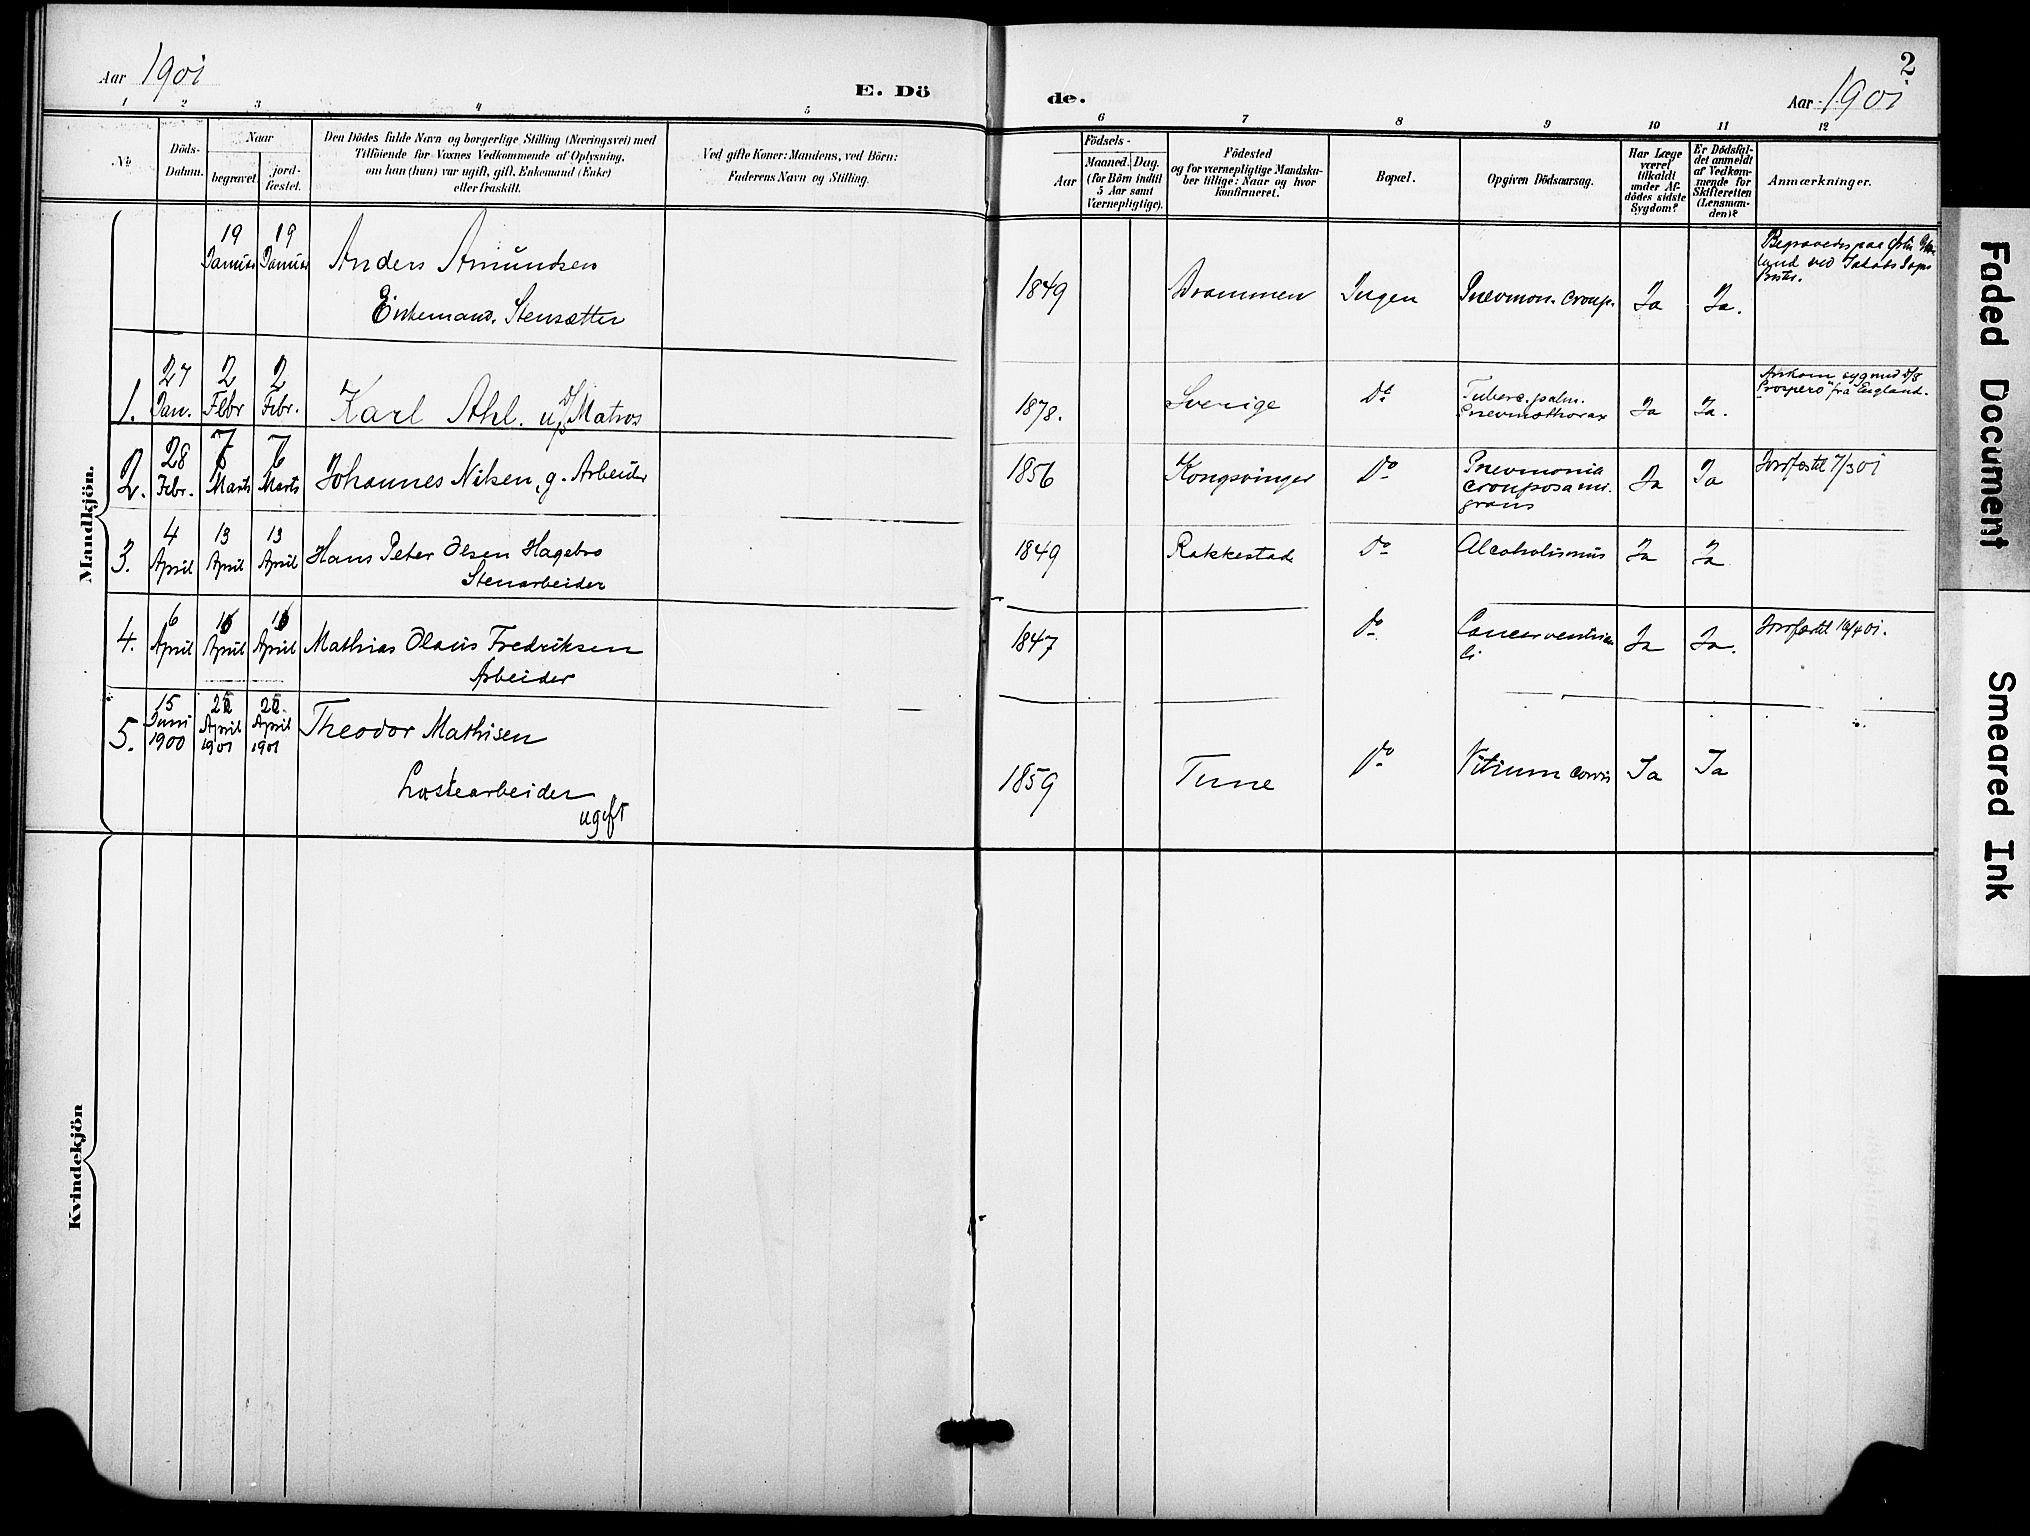 Aar 1901
E. Döde.
2
Aar 1901
1 2 3 4 5 6 7 8 9 10 11 12
No
Döds-
Datum.
Naar
begravet.
jord-
fæstet.
Den Dödes fulde Navn og borgerlige Stilling (Næringsvei) med
Tilföiende for Voxnes Vedkommende af Oplysning,
om han (hun) var ugift, gift, Enkemand (Enke)
eller fraskilt.
Ved gifte Koner: Mandens, ved Börn:
Faderens Navn og Stilling.
Födsels-
Aar
Maaned. Dag.
(for Börn indtil
5 Aar samt
Værnepligtige).
Födested
og for værnepligtige Mandska-
ber tillige: Naar og hvor
konfirmeret.
Bopæl.
Opgiven Dödsaarsag.
Har Læge
været
tilkaldt
under Af-
dödes sidste
Sygdom?
Er Dödsfal-
det anmeldt
af Vedkom-
mende for
Skifteretten
(Lensman-
den)?
Anmærkninger.
Mandkjön.
19 Januar
19 Januar
Anders Amundsen
Enkemand. Stensætter
1849
Drammen
Ingen
Pnevmon. croup.
Ja
Ja.
1.
27 Jan.
2 Febr
2 Febr.
Karl Ahl. u, Matros
1878.
Sverige
Do
Tuberc. pulm.
Pnevmothorax
Ja
Ja.
Ankom syg med D/S
"Prospero" fra England.
2.
28 Febr.
7 Marts
7 Marts
Johannes Nilsen, g. Arbeider
1856
Kongsvinger
Do
Pnevmonia
crouposa mi-
grans
Ja
Ja
Jordfæstet 7/3 01
3.
4 April
13 April
13 April
Hans Peter Olsen Hagebro
Stenarbeider
1849
Rakkestad
Do
Alcoholismus
Ja
Ja
4.
6 April
16 April
16 April
Mathias Olaus Fredriksen
Arbeider
1847
Do
Cancer ventricu
li
Ja
Ja.
Jordfæstet 16/4 01.
5.
15 Juni 1900
April 1901
April 1901
Theodor Mathisen
Løstearbeider
ugift
1859
Tune
Do
Vitium cordis
Ja
Ja
Kvindekjön
Faded Document
Smeared Ink